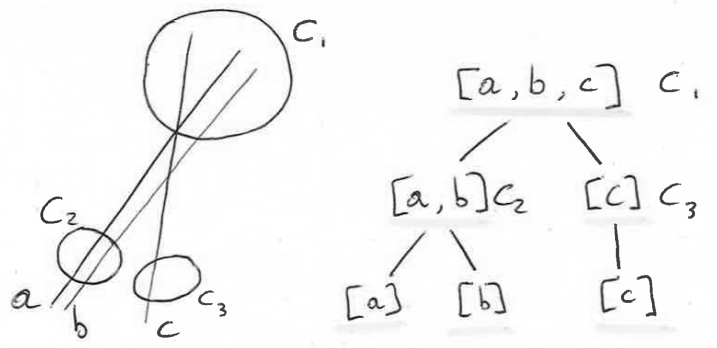 C₁
C₂
a
b
c
C₃
[a, b, c] C₁
[a, b] C₂ [c] C₃
[a] [b] [c]